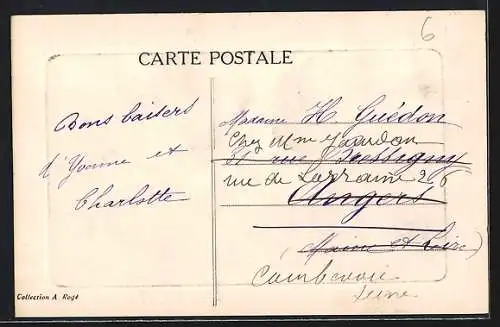 6
CARTE POSTALE
Bons baisers
d'Yvonne et
Charlotte
Madame H. Guédon
Chez Mme
rue Bressigny
rue de Lorraine 26
Angers
(Maine et Loire)
Courbevoie
Seine
Collection A. Rogé